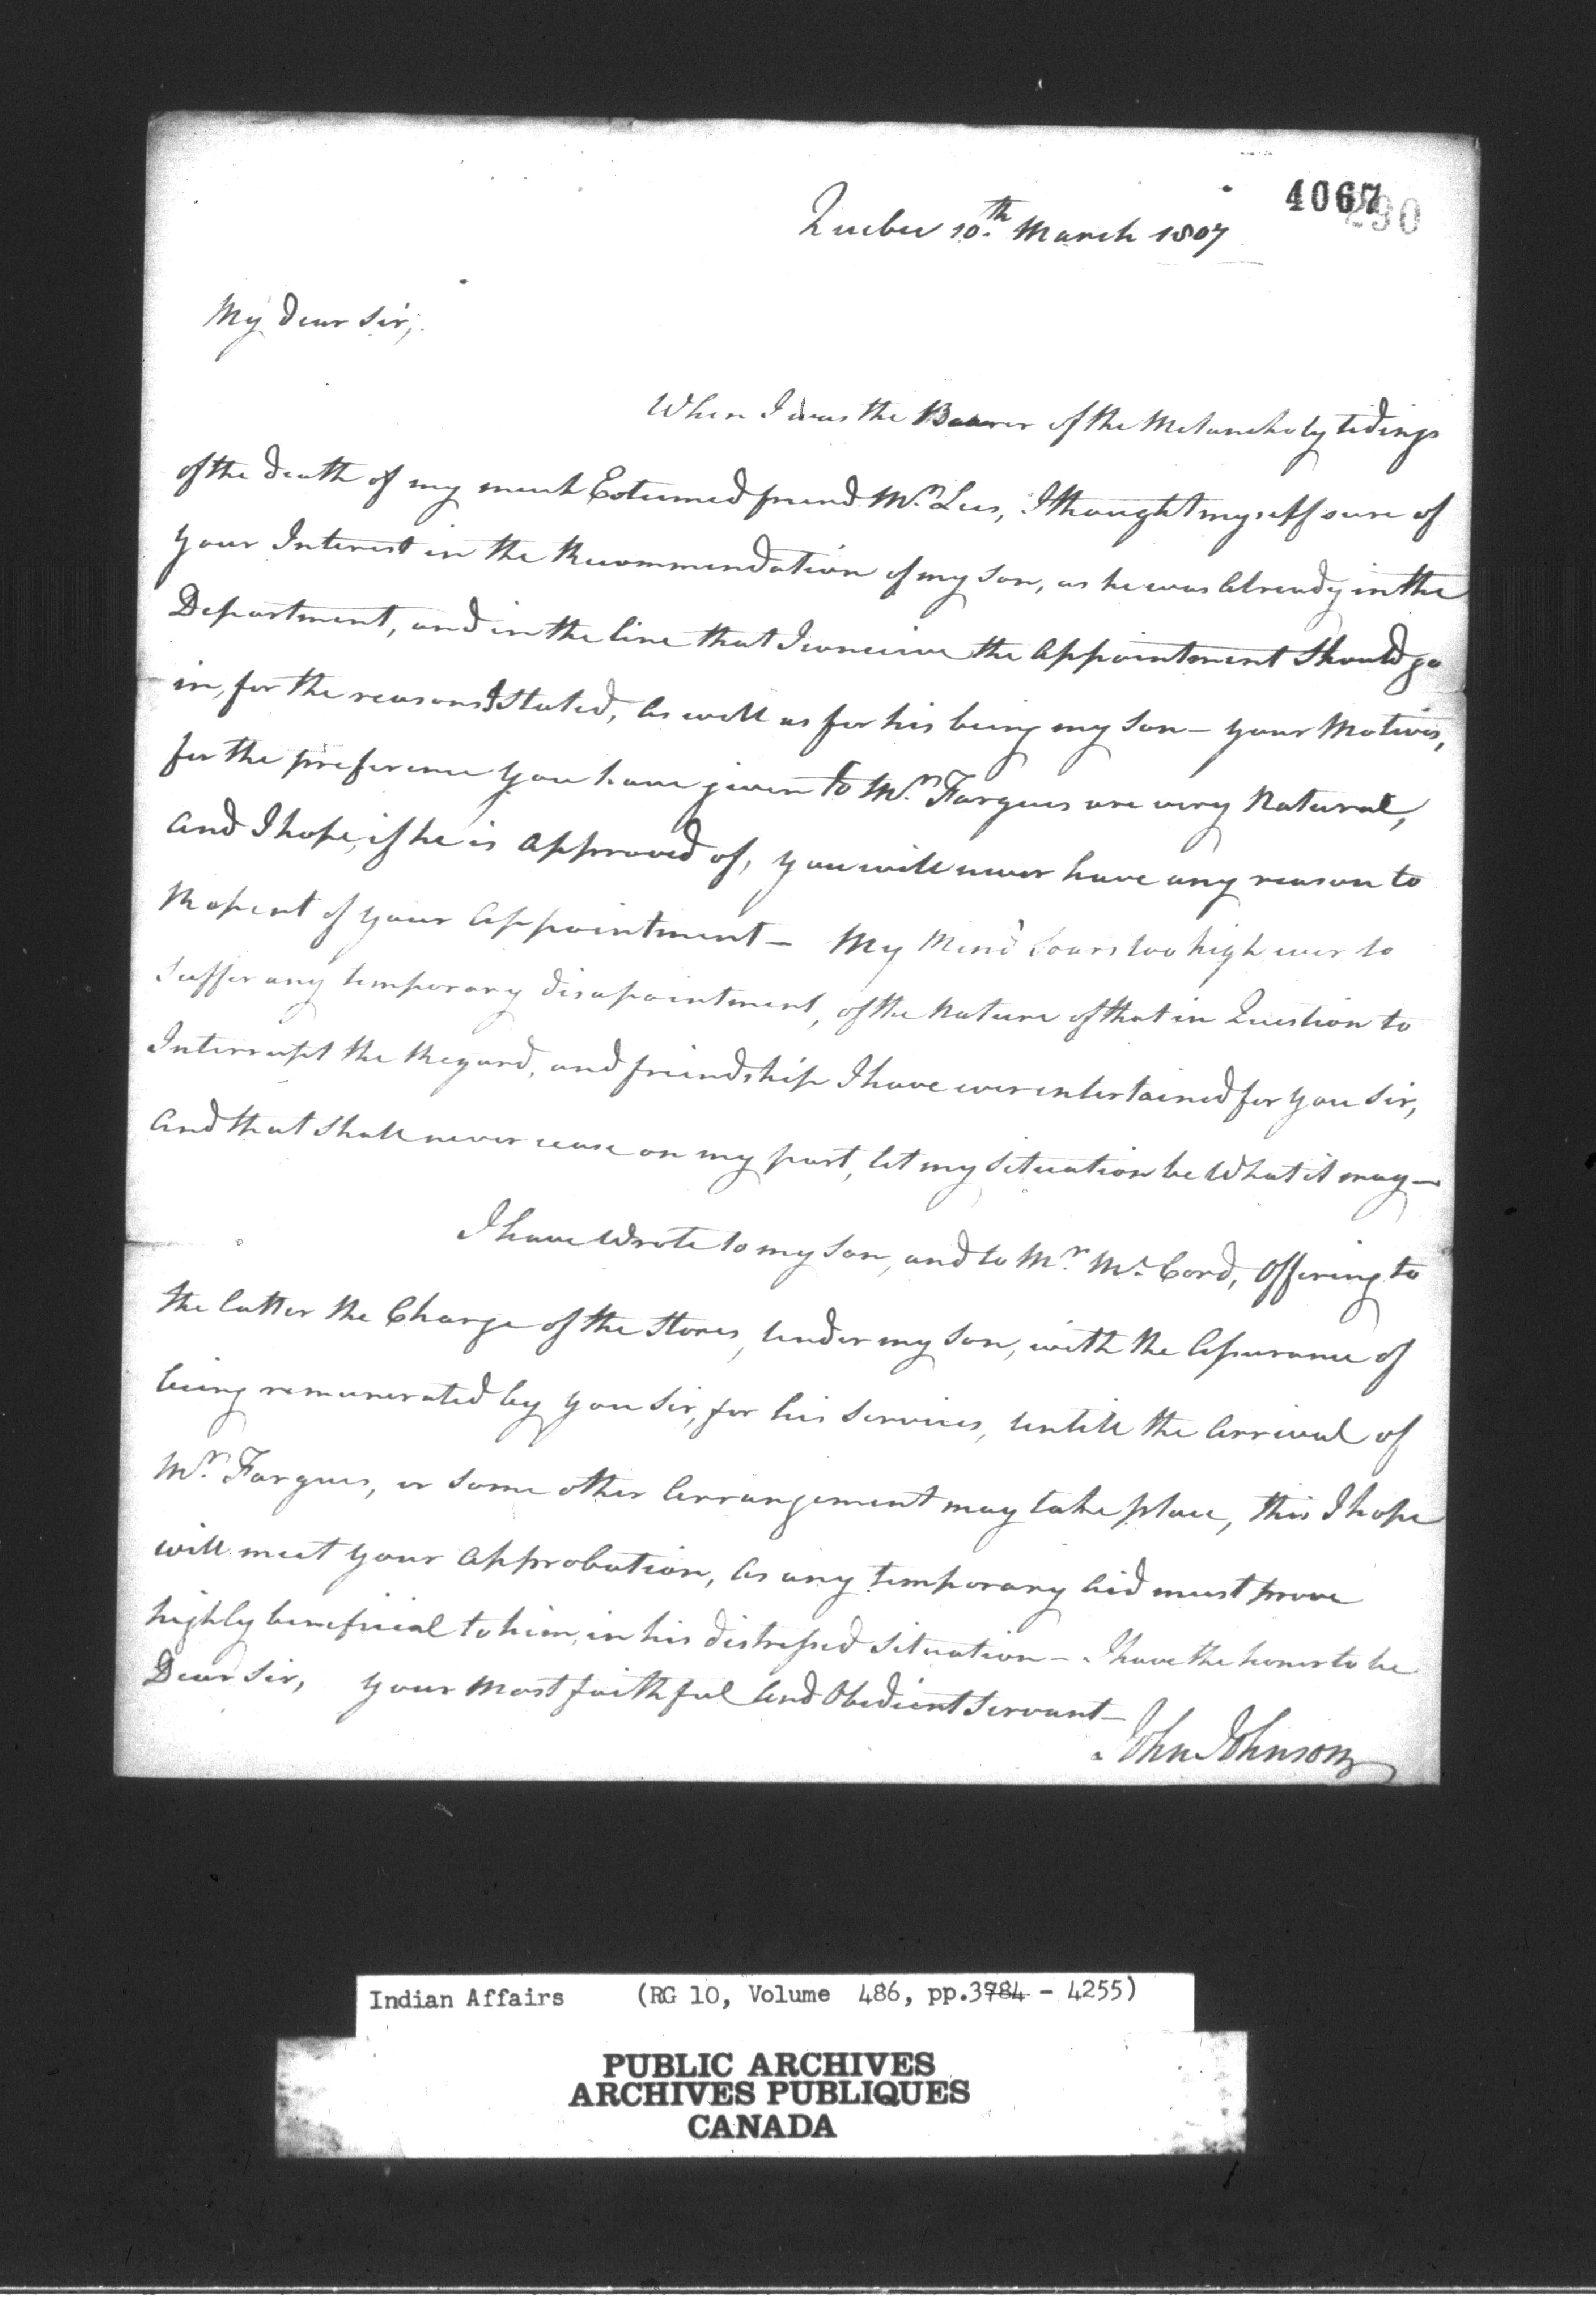 4067
290
Quebec 10.th March 1807
My Dear Sir,
When I was the Bearer of the Melancholy tidings
of the Death of my much Esteemed friend Mr. Lees, I thought myself sure of
your Interest in the Recommendation of my Son, as he was Already in the
Department, and in the line that I conceive the Appointment Should go
in, for the reasons I Stated, As well as for his being my Son - your Motives,
for the preference you have given to Mr. Fargues are very Natural,
And I hope, if he is Approved of, you will never have any reason to
Repent of your Appointment - My Mind Soars too high ever to
Suffer any temporary disapointment, of the Nature of that in Question to
Interrupt the Regard, and friendship I have ever entertained for you Sir,
And that Shall never cease on my part, let my Situation be What it may -
I have Wrote to my Son, and to Mr. Mc.Cord, Offering to
the latter the Charge of the Stores, Under my Son, with the Assurance of
being remunerated by you Sir, for his Services, Untill the Arrival of
Mr. Fargues, or Some other Arrangement may take place, this I hope
will meet your Approbation, As any temporary Aid must prove
highly beneficial to him, in his distressed Situation - I have the honor to be
Dear Sir, your Most faithful And Obedient Servant -
John Johnson
Indian Affairs (RG 10, Volume 486, pp.3784 - 4255)
PUBLIC ARCHIVES
ARCHIVES PUBLIQUES
CANADA